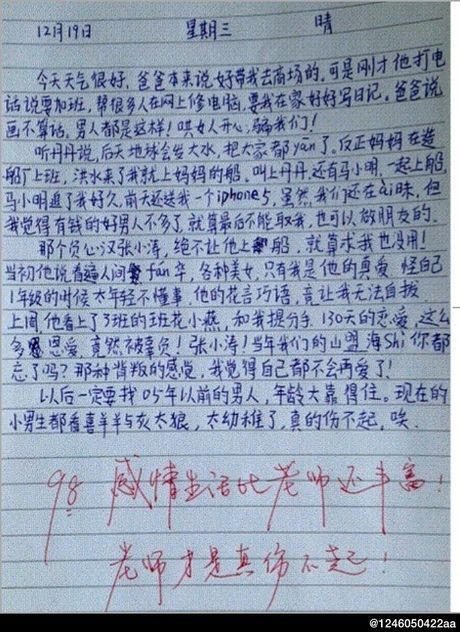 12月19日 星期三 晴
今天天气很好，爸爸本来说好带我去商场的，可是刚才他打电
话说要加班，帮很多人在网上修电脑，要我在家好好写日记。爸爸说
画不算话，男人都是这样！哄女人开心，骗我们！
听丹丹说，后天地球会发大水，把大家都yan了。反正妈妈在造
船厂上班，洪水来了我就上妈妈的船。叫上丹丹，还有马小明，一起上船，
马小明追了我好久，前天还送我一个iphone5，虽然，我们还在ai昧，但
我觉得有钱的好男人不多了，就算最后不能取我，也可以做朋友的。
那个负心汉张小涛，绝不让他上船，就算求我也没用！
当初他说看遍人间fan华，各种美女，只有我是他的真爱，怪自己
1年级的时候太年轻不懂事，他的花言巧语，竟让我无法自拔
上周，他看上了3班的班花小燕，和我提分手，130天的恋爱，这么
多恩爱，竟然被辜负！张小涛！当年我们的山盟海Shi你都
忘了吗？那种背叛的感觉，我觉得自己都不会再爱了！
以后一定要找05年以前的男人，年龄大靠得住。现在的
小男生都看喜羊羊与灰太狼，太幼稚了，真的伤不起，唉。
98 感情生活比老师还丰富！
老师才是真伤不起！
@1246050422aa